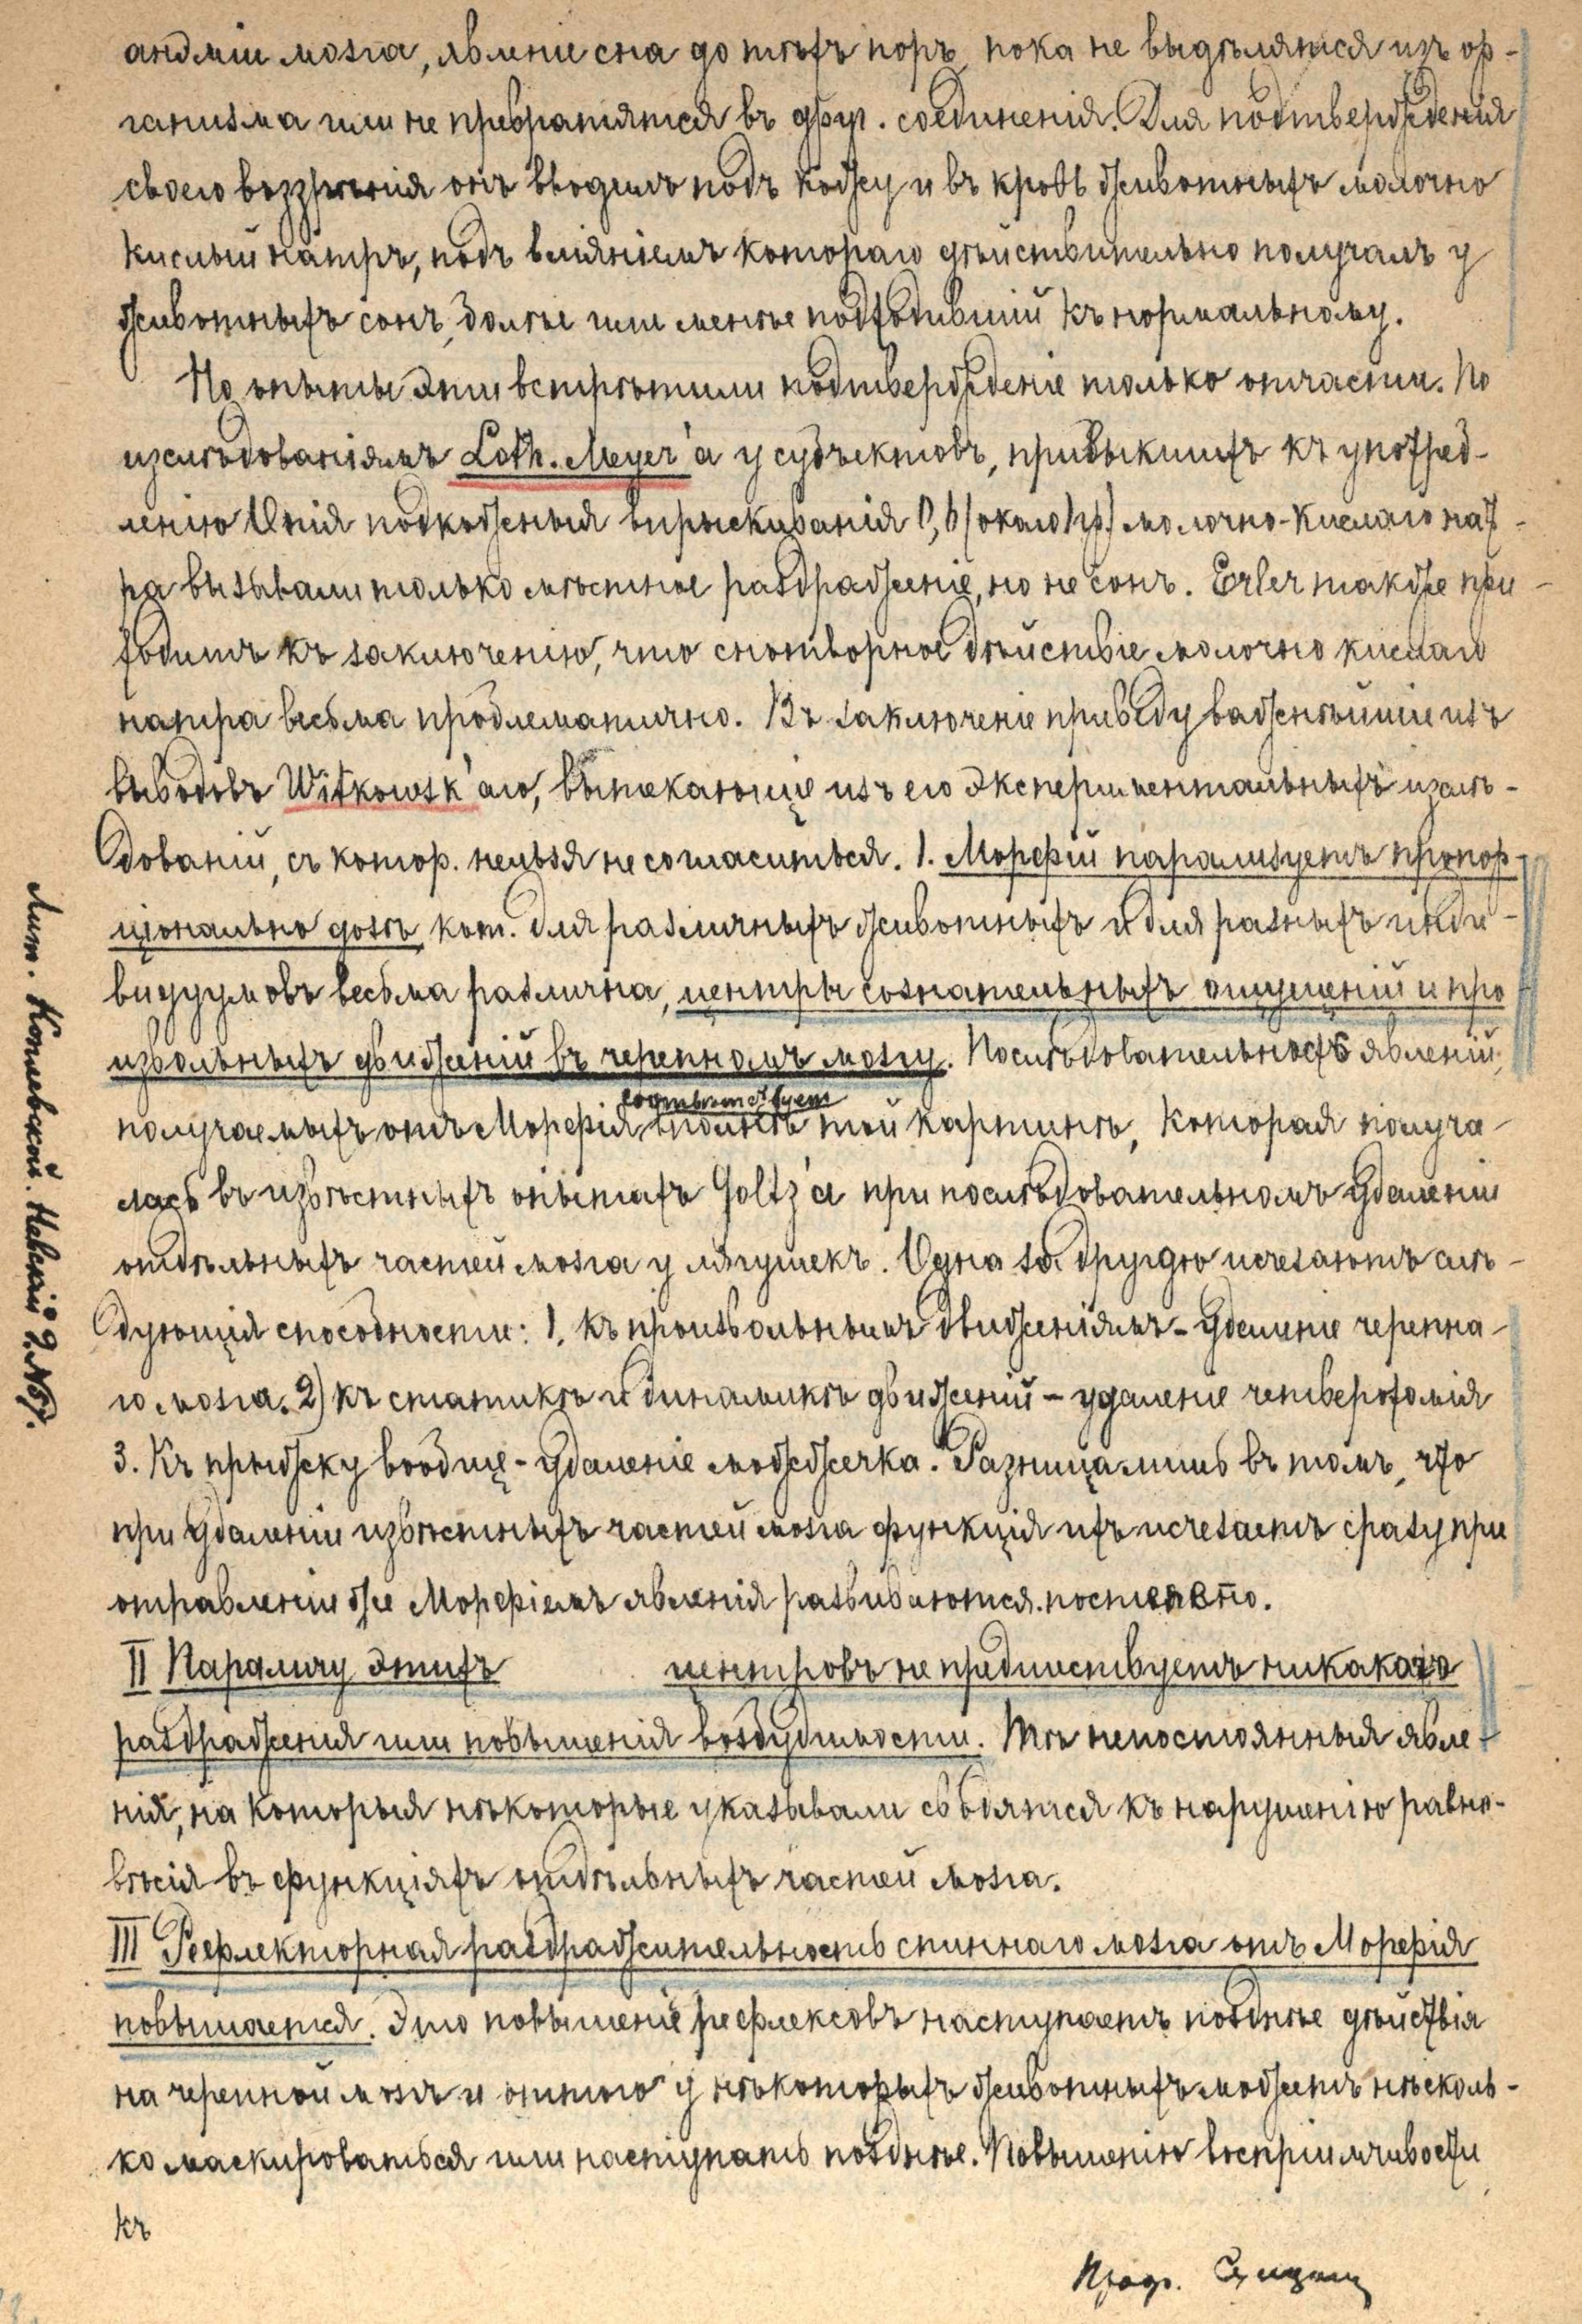 анэміи мозга, явленіе сна до тѣхъ поръ, пока не выдѣлятся изъ ор-
ганизма или не превратятся въ друг. соединенія. Для подтвержденія
своего воззрѣнія онъ вводилъ подъ кожу и въ кровь животныхъ молочно
кислый натръ, подъ вліяніемъ котораго дѣйствительно получалъ у
животныхъ сонъ, болѣе или менѣе подходившій къ нормальному.
Но опыты эти встрѣтили подтвержденіе только отчасти. По
изслѣдованіямъ Loth. Meyer'а у субъектовъ, привыкшихъ къ употреб-
ленію Опія подкожныя впрыскиванія (около молочно-кислаго нат-
ра вызывали только мѣстное раздраженіе, но не сонъ. Erler также при-
ходитъ къ заключенію, что снотворное дѣйствіе молочно кислаго
натра весьма проблематично. Въ заключеніе приведу важнѣйшіе изъ
выводовъ Witkowsk'аго, вытекающіе изъ его экспериментальныхъ изслѣ-
дованій, съ котор. нельзя не согласиться. 1. Морфій парализуетъ пропор-
ціонально дозѣ, кот. для различныхъ животныхъ и для разныхъ инди-
видуумовъ весьма различна, центры сознательныхъ ощущеній и про
извольныхъ движеній въ черепномъ мозгу. Послѣдовательность явленій,
соотвѣтствует
получаемыхъ отъ Морфія, вполнѣ той картинѣ, которая получа-
лась въ извѣстныхъ опытахъ Goltz'а при послѣдовательномъ удаленіи
отдѣльныхъ частей мозга у лягушекъ. Одна за другою исчезаютъ слѣ-
дующія способности: 1. къ произвольнымъ движеніямъ - удаленіе черепна-
го мозга. 2) къ статикѣ и динамикѣ движеній - удаленіе четверохолмія
3. Къ прыжку вообще - удаленіе мозжечка. Разница лишь въ томъ, что
при удаленіи извѣстныхъ частей мозга функція ихъ исчезаетъ сразу при
отравленіи же Морфіемъ явленія развиваются постепенно.
II Параличу этихъ центровъ не предшествуетъ никакого
раздраженія или повышенія возбудимости. Тѣ непостоянныя явле-
нія, на которыя нѣкоторые указывали сводятся къ нарушенію равно-
вѣсія въ функціяхъ отдѣльныхъ частей мозга.
III Рефлекторная раздражительность спиннаго мозга отъ Морфія
повышается. Это повышеніе рефлексовъ наступаетъ позднѣе дѣйствія
на черепной мозгъ и оттого у нѣкоторыхъ животныхъ можетъ нѣсколь-
ко маскироваться или наступать позднѣе. Повышенію воспріимчивости
къ
Проф.
Лит. Невскій